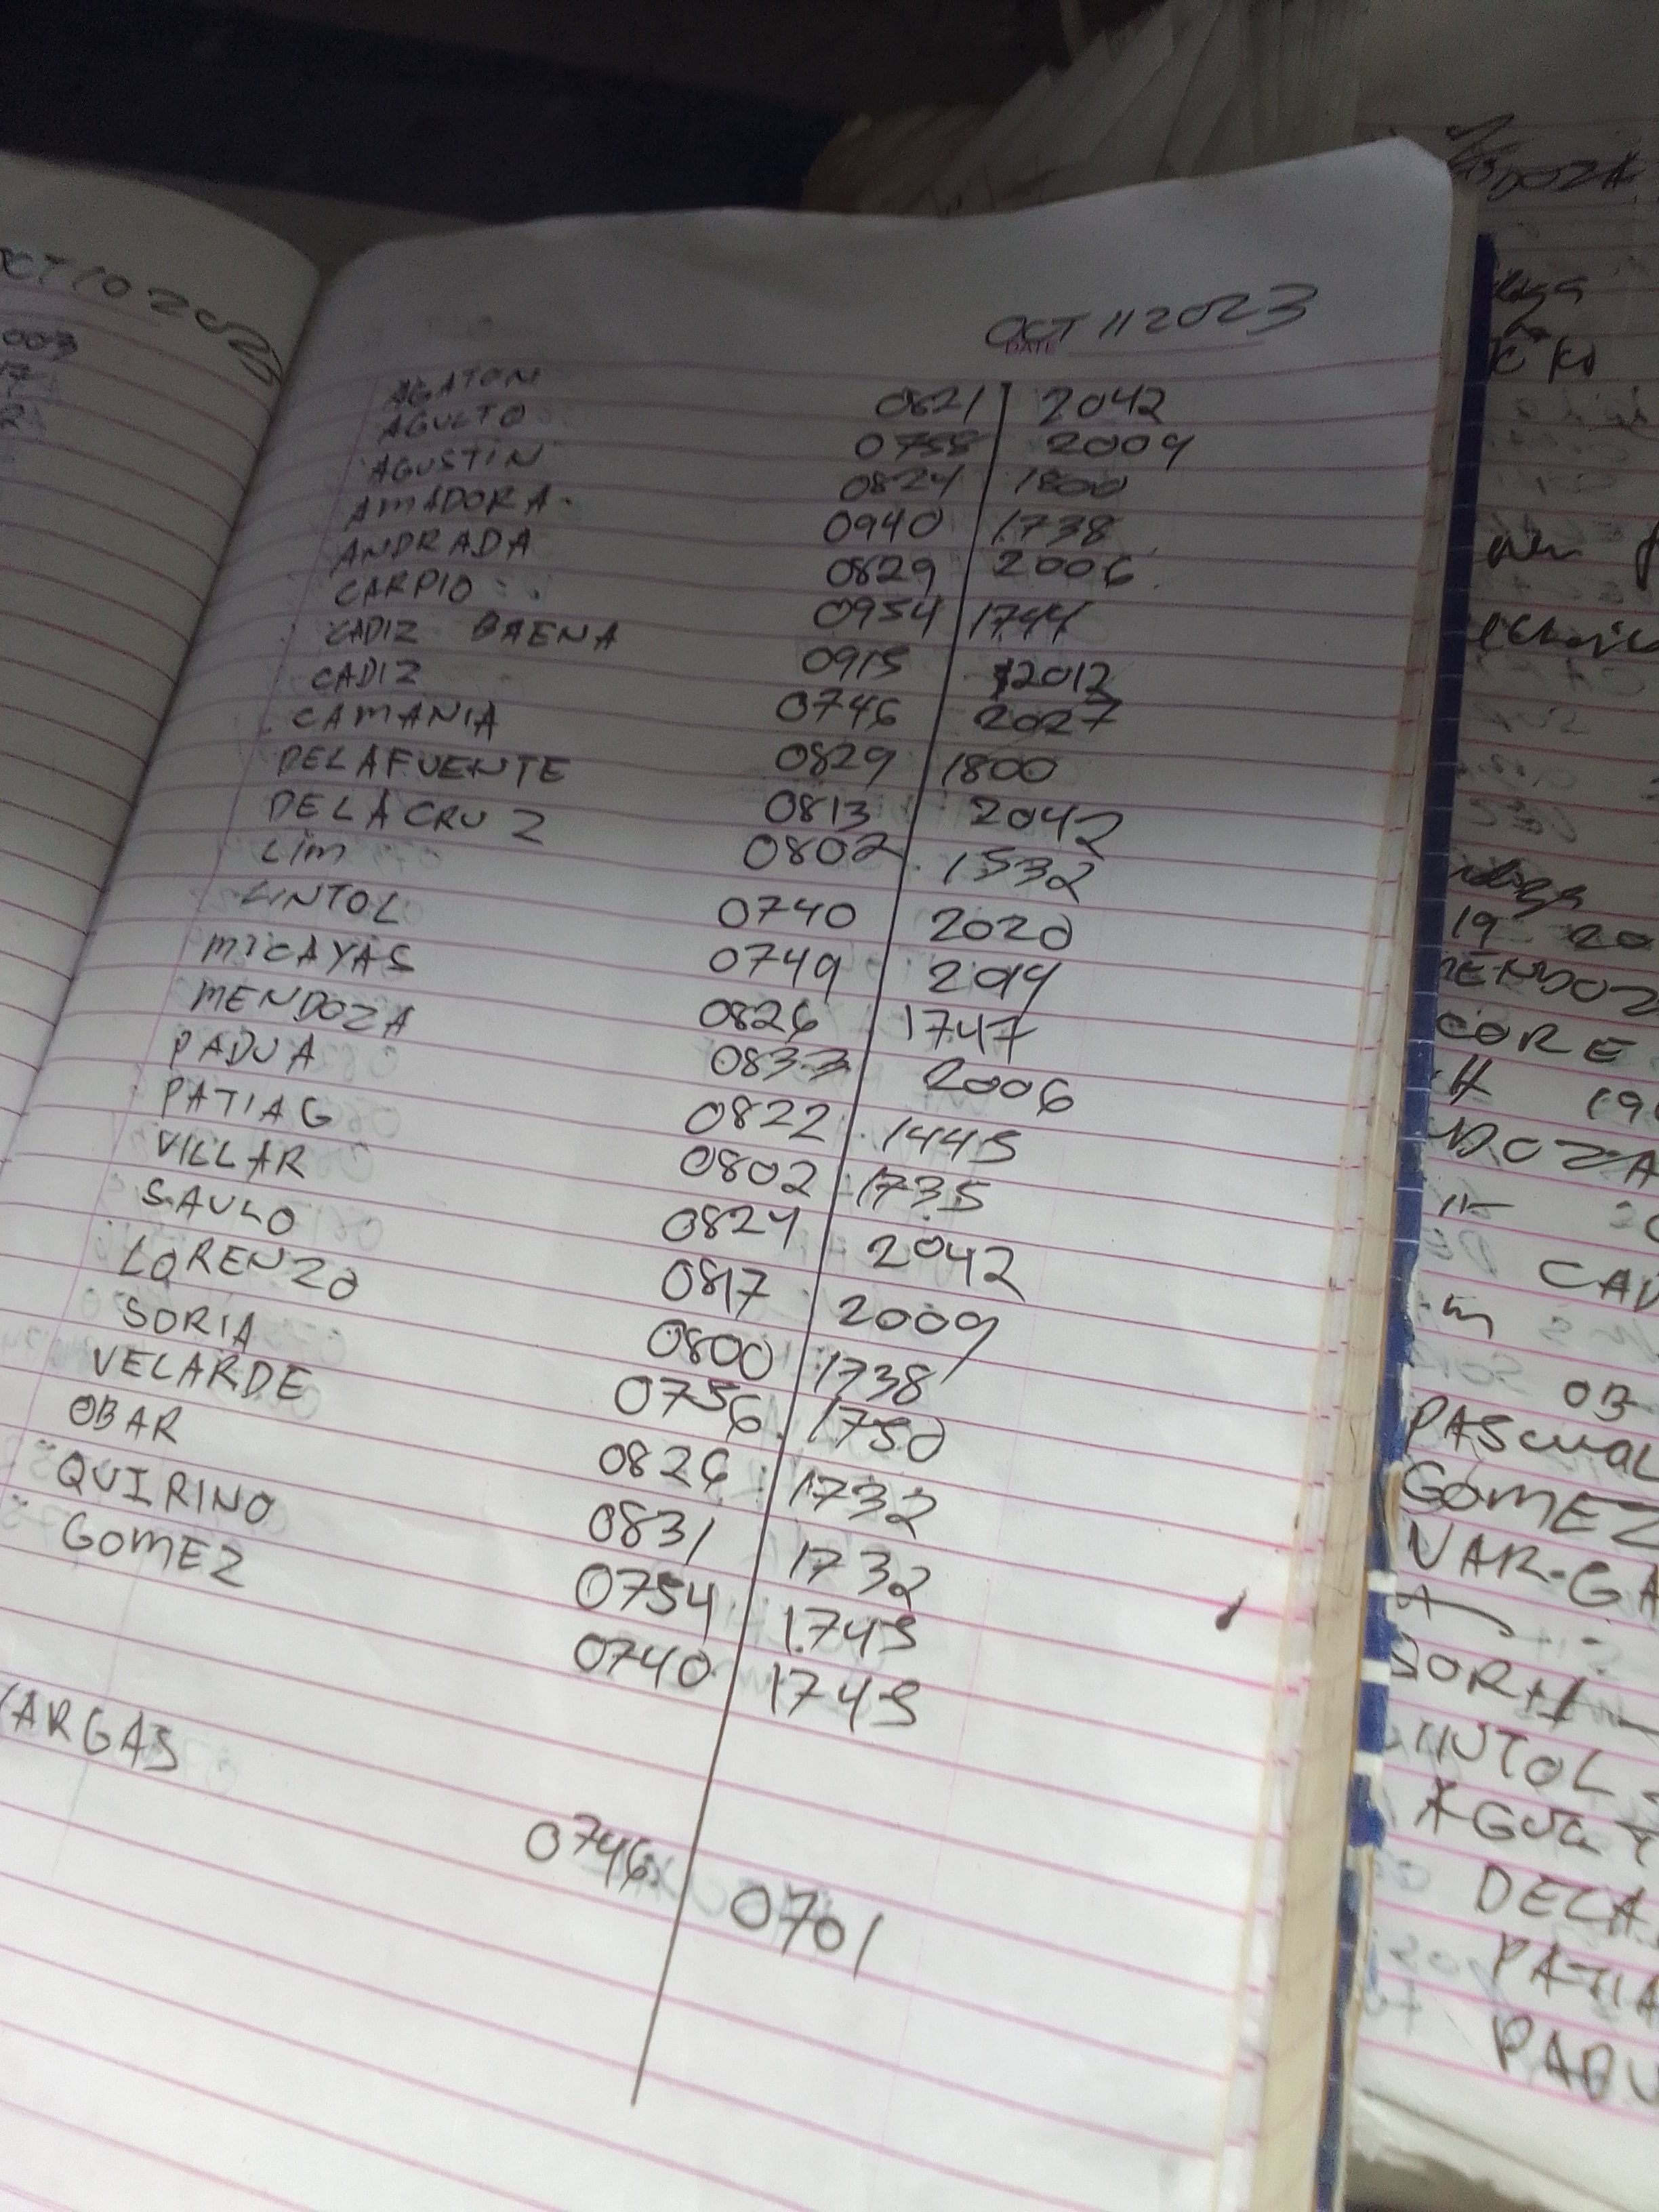 OCT 10 2023
003
17
OCT 11 2023
DATE
AGATON 0821 2042
AGULTO 0758 2009
AGUSTIN 0824 1800
AMADORA 0940 1738
ANDRADA 0829 2006
CARPIO 0954 1744
CADIZ BAENA 0915 2012
CADIZ 0746 2027
CAMANIA 0829 1800
DELAFUENTE 0813 2042
DELA CRUZ 0802 1532
LIM 0740 2020
LINTOL 0749 2019
MICAYAS 0826 1747
MENDOZA 0833 2006
PADUA 0822 1445
PATIAG 0802 1735
VILLAR 0824 2042
SAULO 0817 2009
LORENZO 0800 1738
SORIA 0756 1750
VELARDE 0826 1732
OBAR 0831 1732
QUIRINO 0754 1745
GOMEZ 0740 1745
VARGAS 0746 0701
19 20
MENDOZ
CORE
19
NDOZA
CAD
OB
PASCUAL
GOMEZ
VARGA
SORI
LINTOL
AGULT
DELA
PATIA
PADU